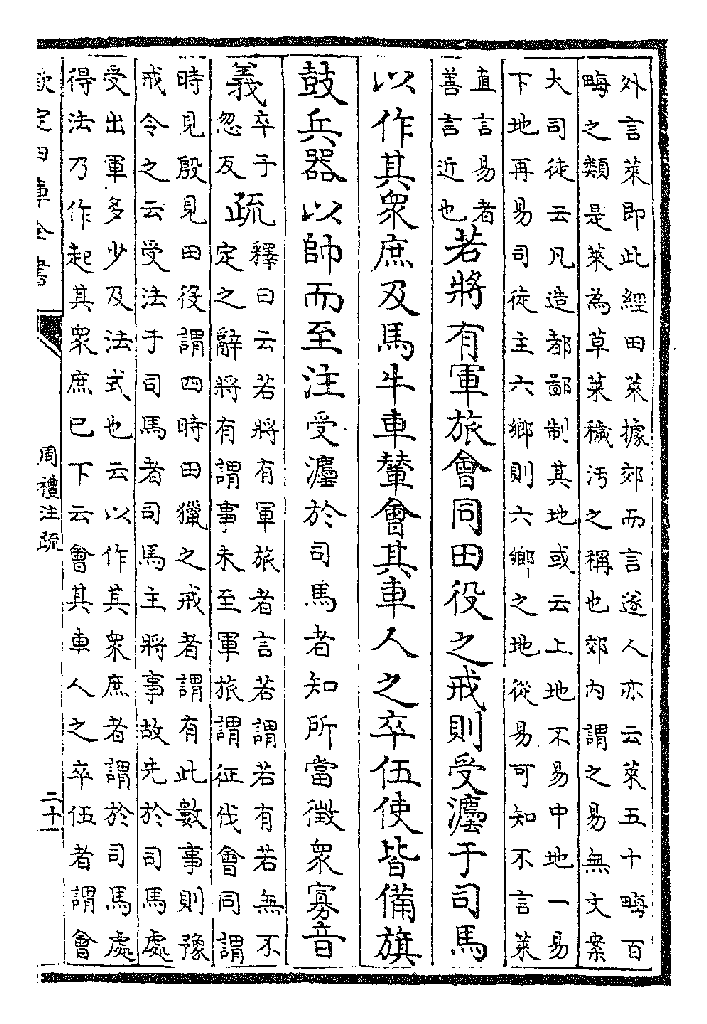 外言萊即此經田萊據郊而言遂人亦云萊五十畮百
畮之類是萊為草萊穢汚之稱也郊內謂之易無文案
大司徒云凡造都鄙制其地或云上地不易中地一易
下地再易司徒主六鄉則六鄉之地從易可知不言萊
直言易者
善言近也
若將有軍旅會同田役之戒則受灋于司馬
以作其衆庶及馬牛車輦會其車人之卒伍使皆備旗
鼓兵器以帥而至注受灋於司馬者知所當徵衆寡音
義
卒子
忽反
疏
釋曰云若將有軍旅者言若謂若有若無不
定之辭將有謂事未至軍旅謂征伐會同謂
時見殷見田役謂四時田獵之戒者謂有此數事則豫
戒令之云受法于司馬者司馬主將事故先於司馬處
受出軍多少及法式也云以作其衆庶者謂於司馬處
得法乃作起其衆庶已下云會其車人之卒伍者謂會
欽定四庫全書
周禮注疏
二十一